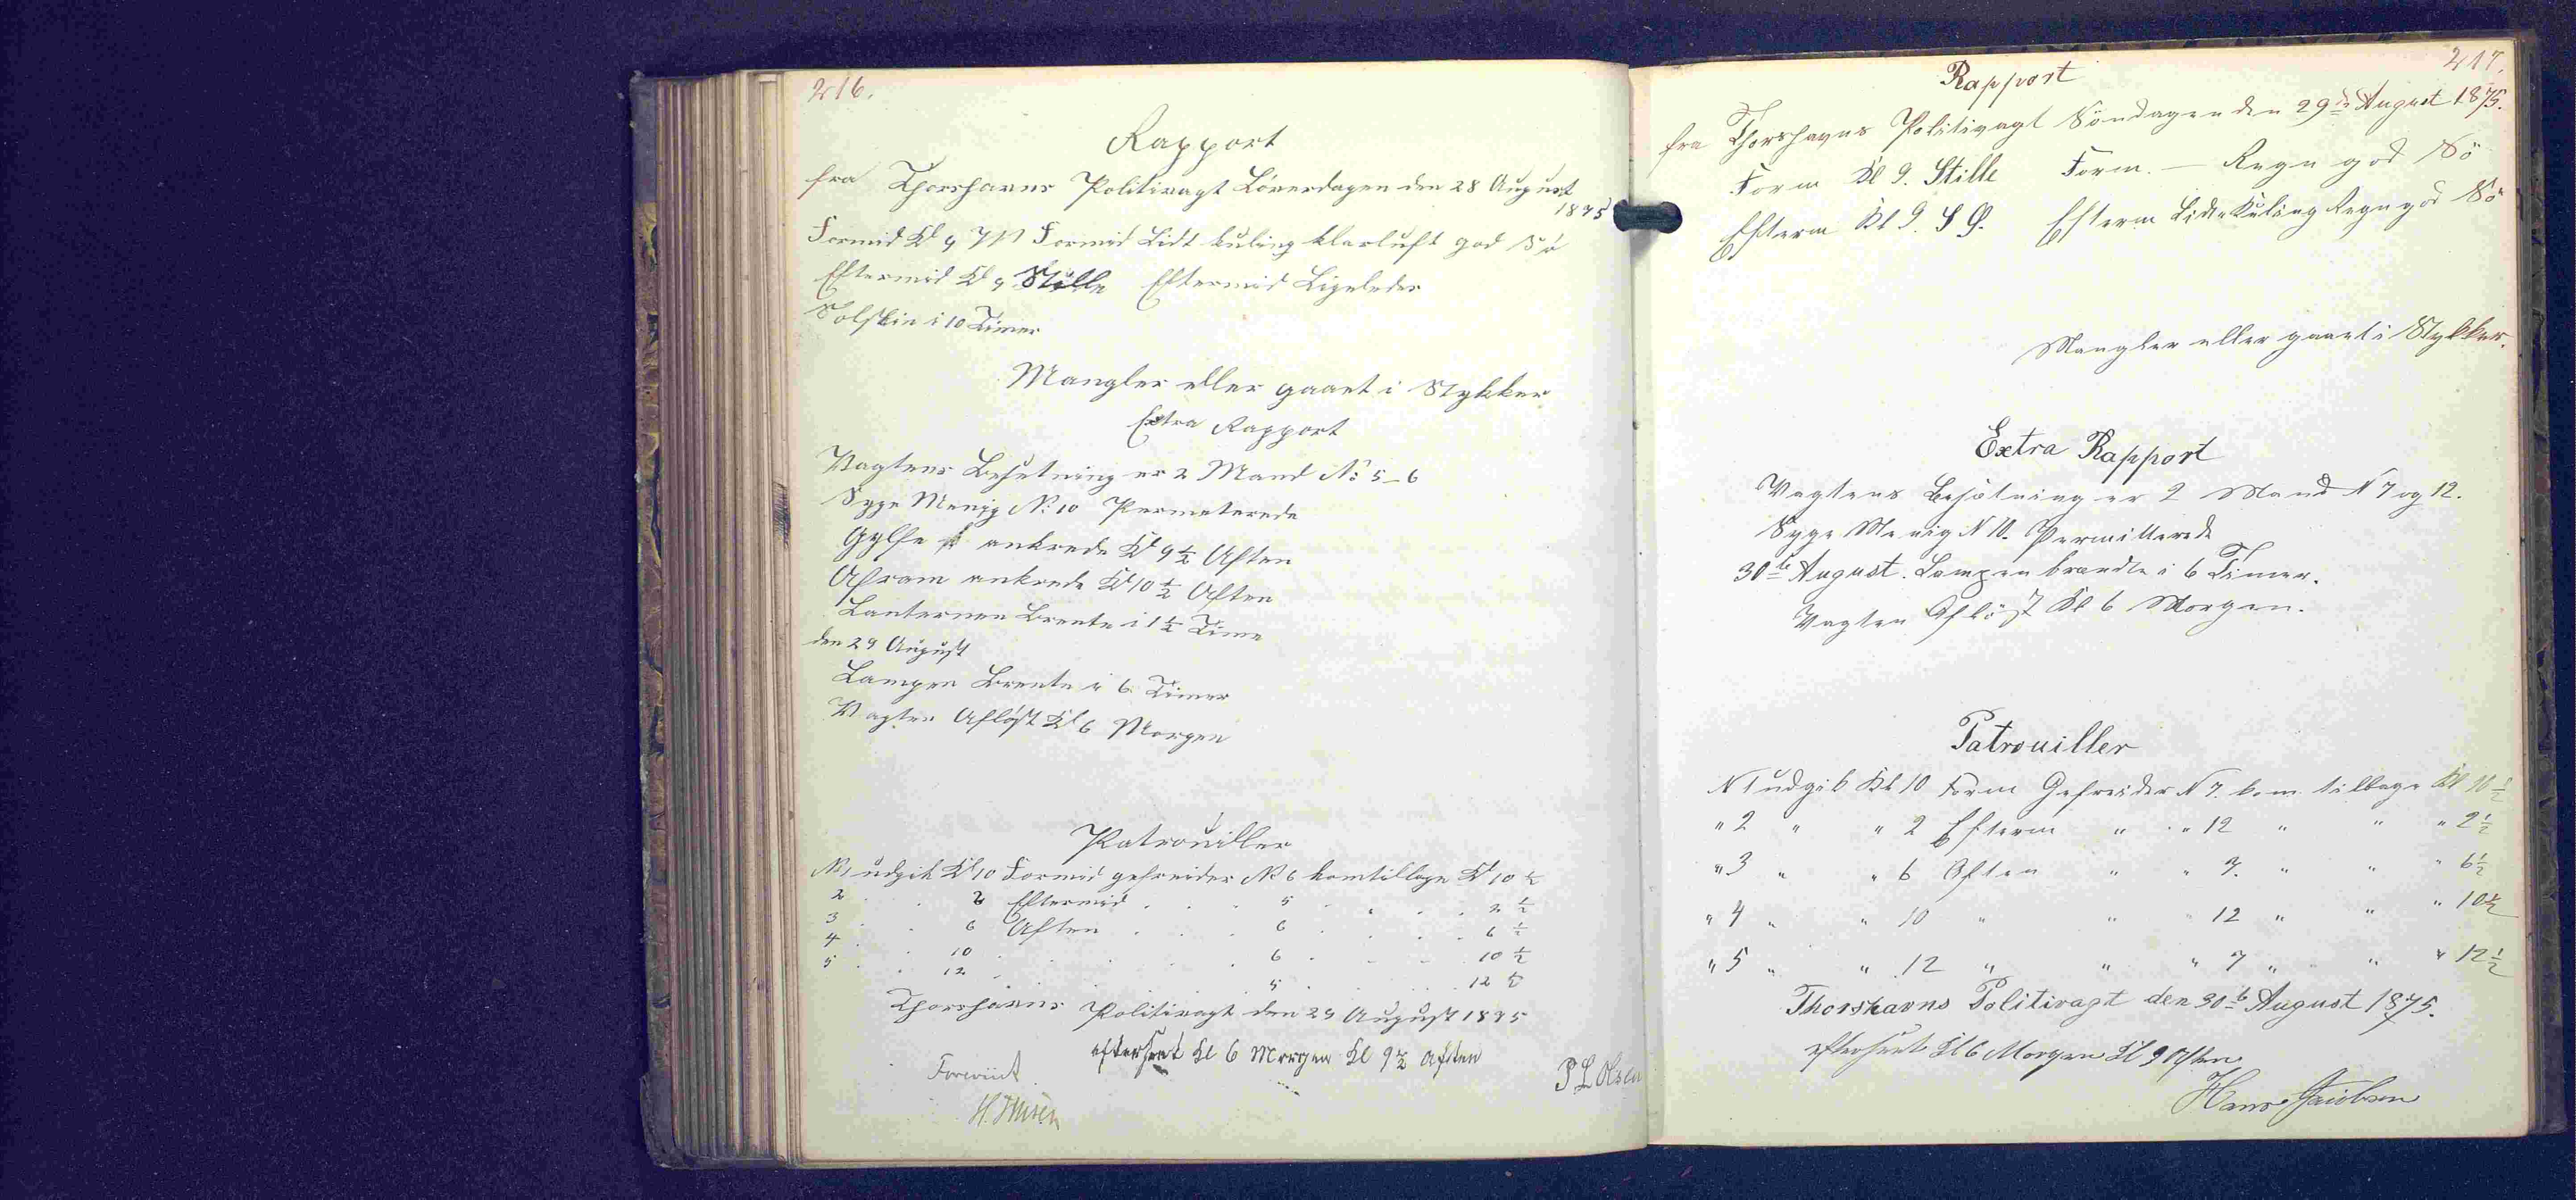 216.
Rapport
fra Thorshavns Politivagt Löverdagen den 28 August
1875
Formid Kl 9 Formid Lidt kuling klarluft god Sö
Eftermid Kl 9 Stille Eftermid Ligeledes
Solskin i 10 Timer
Mangler eller gaaet i Stykker
Extra Rapport
Vagtens Besetning er 2 Mand No 5-6
Syge Menig No 10 Permeterede
Gylfe ankrede Kl 9 1/2 Aften
Afram ankrede Kl 10 1/2 Aften
Lanternen Brente i 1 1/2 Time
den 29 August
Lampen Brente i 6 Timer
Vagten Aflöst Kl 6 Morgen
Patrouiller
No 1 udgik Kl 10 Formid gefreider No 6 kom tilbage Kl 10 1/2
2 . . 2 Eftermid . . . 5 . . . . 2 1/2
3 . . 6 Aften . . . 6 . . . . 6 1/2
4 . . 10 . . . . 6 . . . . 10 1/2
5 . . 12 . . . . 5 . . . . 12 1/2
Thorshavns Politivagt den 29 August 1875
efterseet Kl 6 Morgen Kl 9 1/2 Aften
Forevüst
P L Olsen
217.
Rapport
fra Thorshavns Politivagt Söndagen den 29de August 1875.
Form Kl 9. Stille Form. — Regn god Sö
Efterm Kl 9. S Ø. Efterm Lidt Kuling Regn god Sö
Mangler eller gaaet i Stykker.
Extra Rapport
Vagtens Besætning er 2 Mand N 7 og 12.
Syge Menig N 10. Permitterede
30te August. Lampen brændte i 6 Timer.
Vagten Aflöst Kl 6 Morgen.
Patrouiller
N 1 udgik Kl 10 Form Gefreider N 7. kom tilbage Kl 10 1/2
" 2 " " 2 Efterm " " 12 " " " 2 1/2
" 3 " " 6 Aften " " 7. " " " 6 1/2
" 4 " " 10 " " " 12 " " " 10 1/2
" 5 " " 12 " " " 7 " " " 12 1/2
Thorshavns Politivagt den 30te August 1875.
efterseet Kl 6 Morgen Kl 9 Aften
Hans Jacobsen